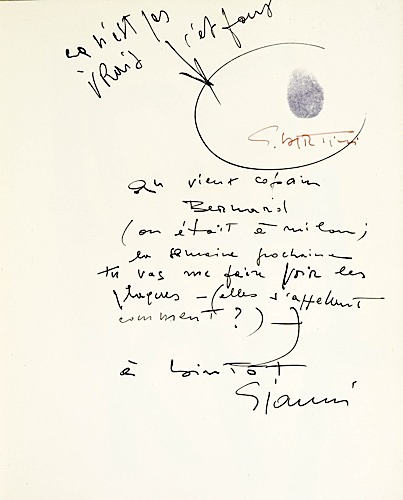 ça n'est pas
vrai
c'est faux
G. BERTini
au vieux copain
Bernard
(on était à milan;
la semaine prochaine
tu vas me faire voir les
plaques – (elles s'appellent
comment ?) –
à bientôt
Gianni